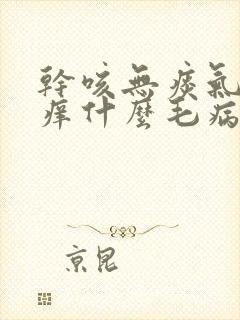 幹咳無痰氣
癢什麼毛病
京昆